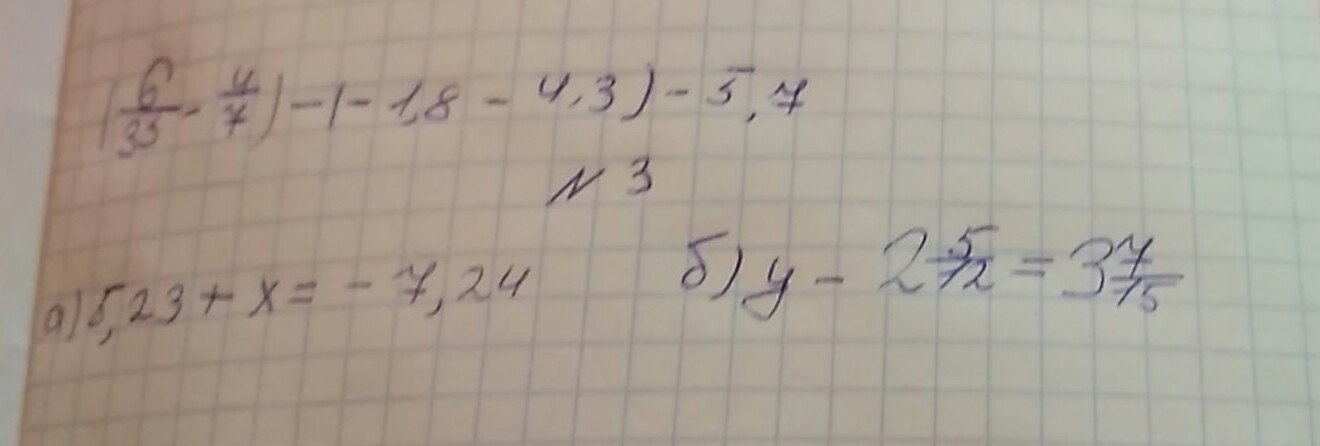 (6/35 - 4/7) - (-1,8 - 4,3) - 5,7
N 3
а) 5,23 + x = - 7,24 б) y - 2 5/12 = 3 7/15